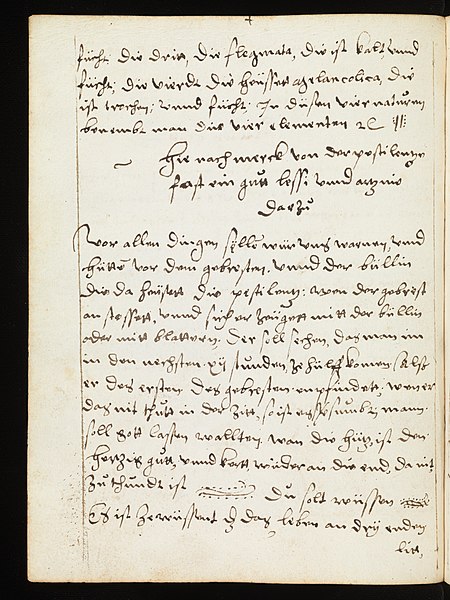 fücht die dritt, die flegmata, die ist kalt vnnd
fücht, die vierdt die heisset melancolica, die
ist trochen, vnnd fücht, In disen vier naturen
benembt man die vier elementen
Hie nach merck von der pestilentz
fast ein gutt lessi vnnd artznie
dar zů
Vor allen dingen sölle wir vns warnen, vnnd
hütte vor dem gebresten, vnnd der büllin
die da heisset die pestilentz: wen der gebrest
an stosset, vnnd sich er zeüget mitt der büllin
oder mitt blattern, Der soll sechen, das man im
in den nechsten xij stunden ze hülff komen, Als
er des ersten des gebresten enpfindet, wen er
das nit thutt in der Zitt, so ist es
soll gott lassen wallten, wan die hitz ist den
hertzig gutt, vnnd kertt wider an die end, da nit
zu thundt ist Du solt wüssen
Es ist ze wüssent das das leben an dry enden
litt,